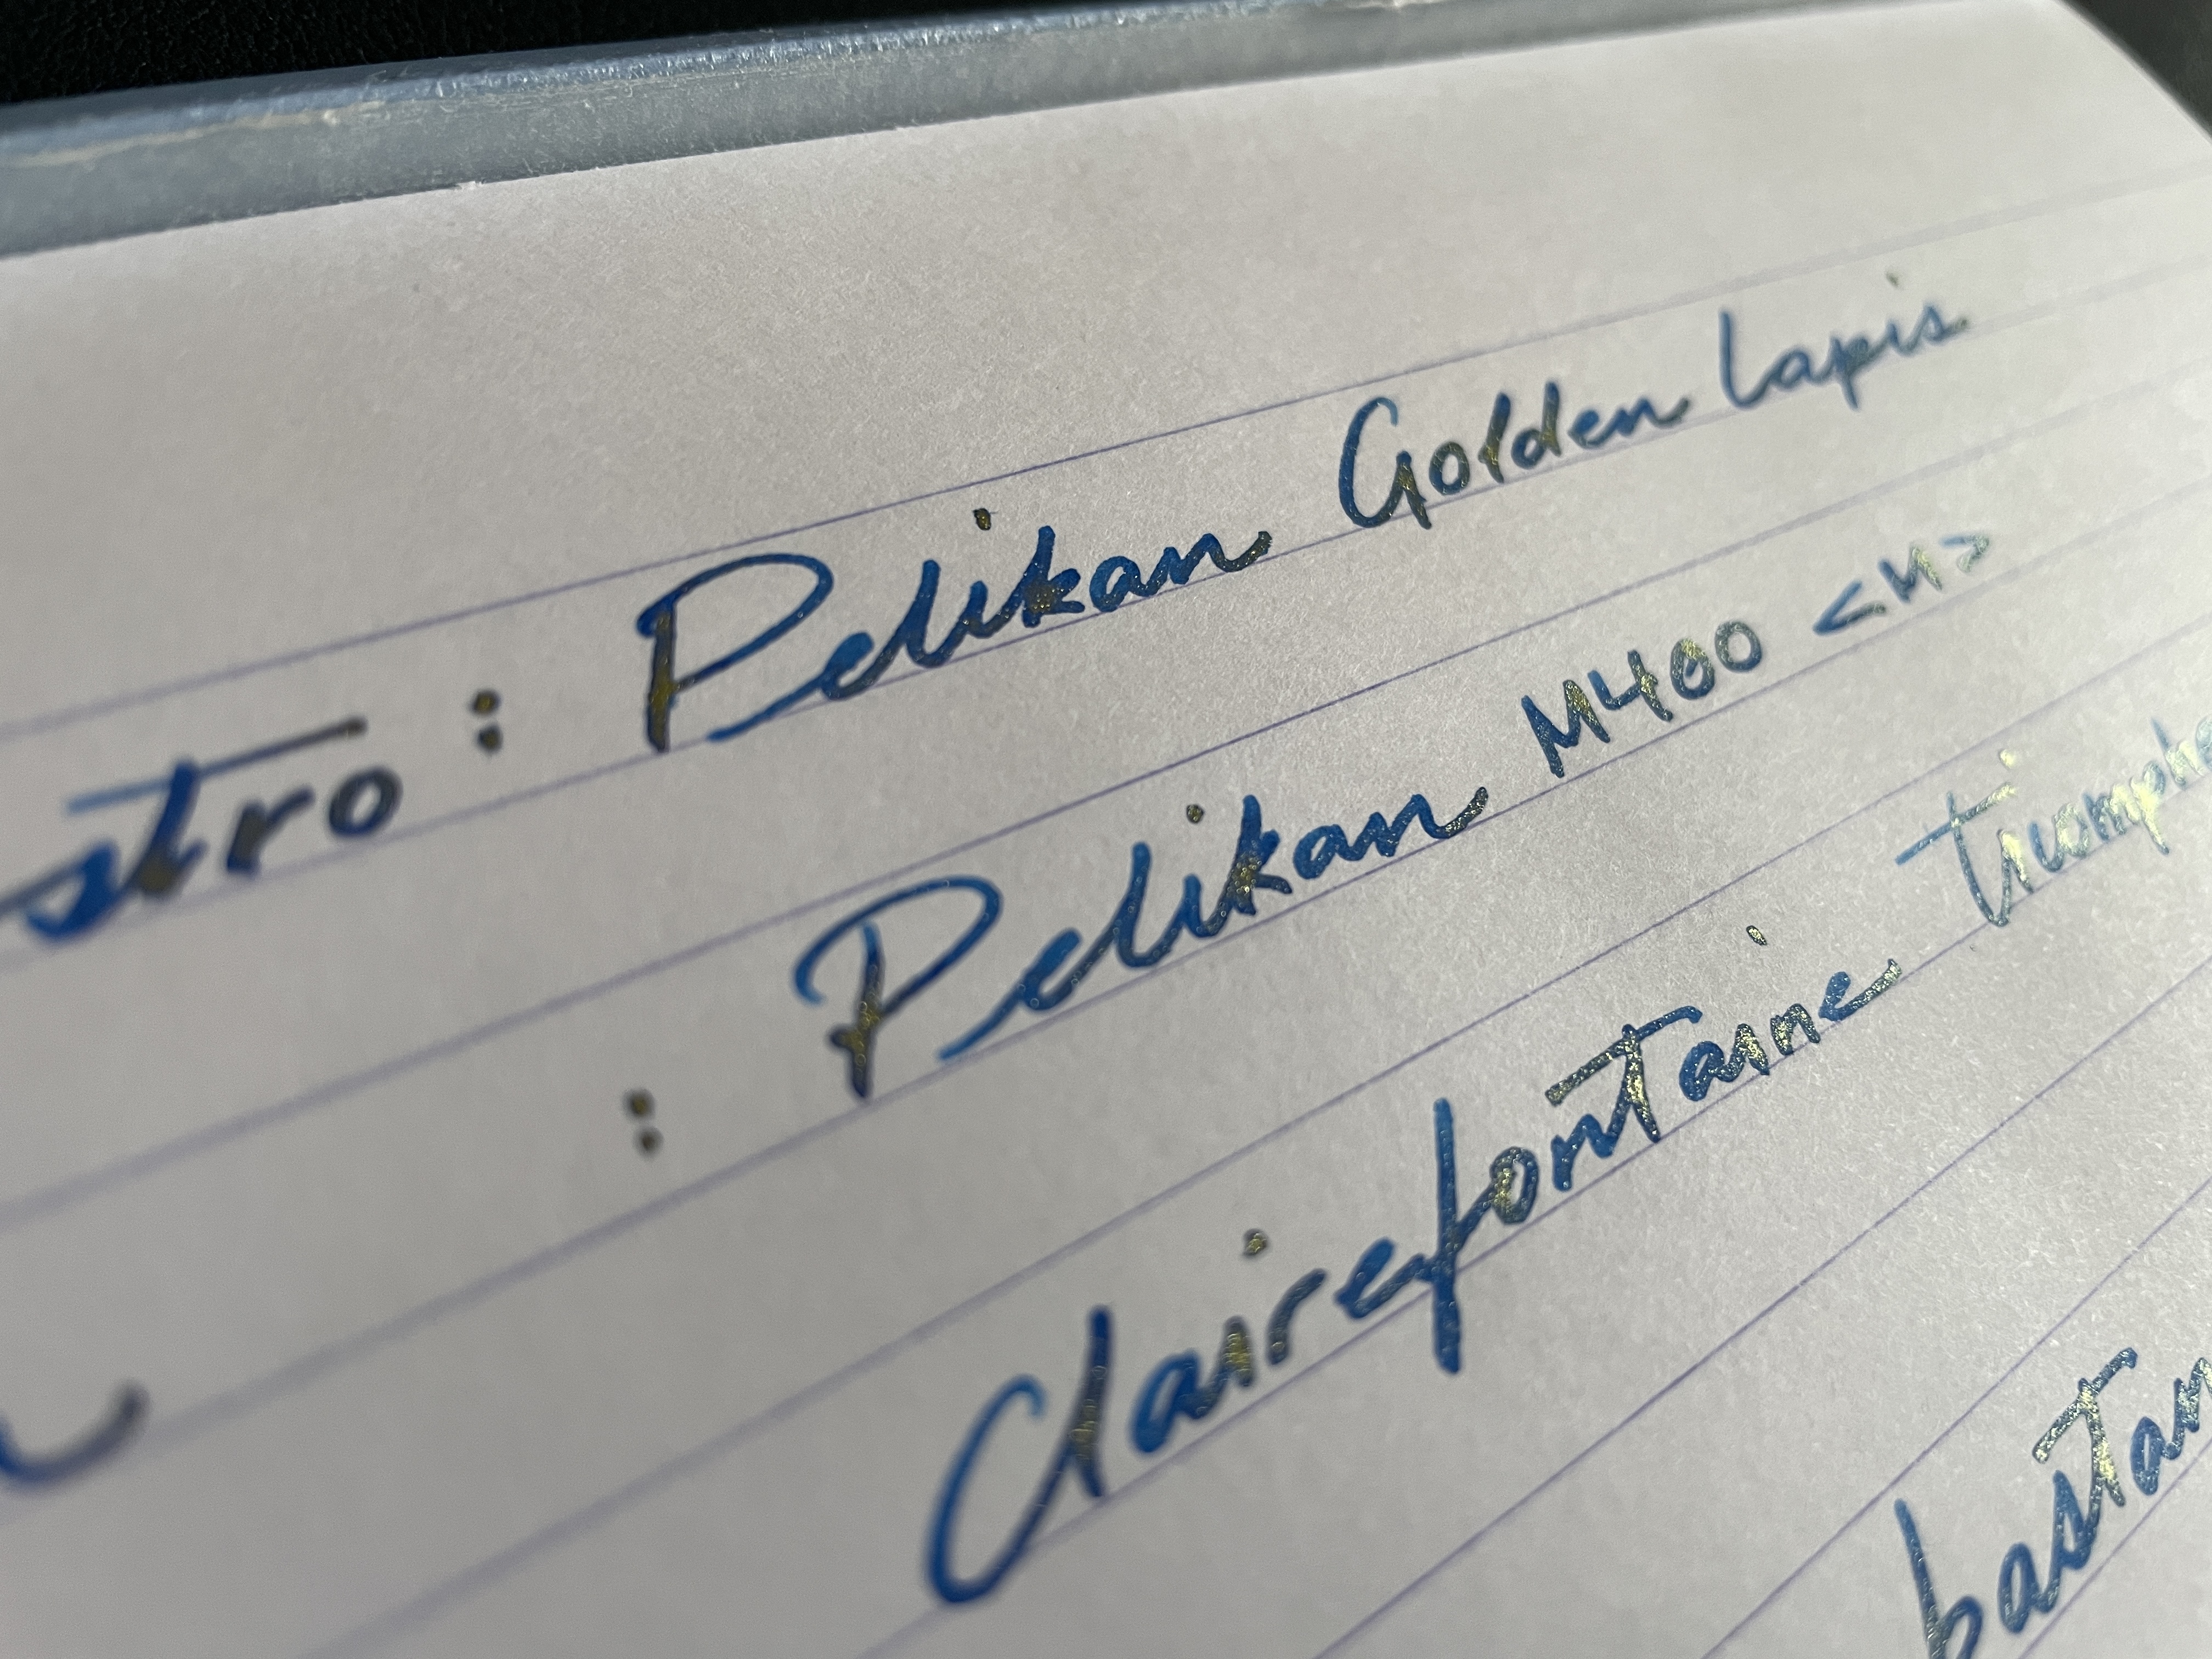 stro : Pelikan Golden Lapis
: Pelikan M400 <M>
Clairefontaine triomphe
bastan